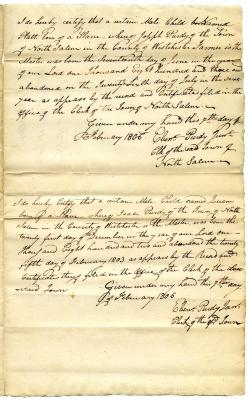 I do hereby certify that a certain Male Child
Platt born of a Slave whereof Joseph Purdy of the Town
of North Salem in the County of Westchester Farmer is the
Master was born the Seventeenth day of June in the year
of our Lord one Thousand Eight hundred and three
abandoned on the day of July in the same
year as appears by the record and Certificate filed in the
office of the Clerk of the Town of North Salem
Given under my hand this 7th day of
February 1806
Ebenr Purdy Junr
Clk of the said Town of
North Salem
I do hereby Certify that a certain Male Child named
born of a Slave whereof Isaac Purdy of the Town of North
Salem in the County of Westchester is the Master was born the
twenty first day of December in the year of our Lord one
thousand Eight hundred and two and abandoned the twenty
fifth day of February 1803 as appears by the Record and
Certificate thereof filed in the Office of the Clerk of the above
said Town
Given under my hand this 7th day
of February 1806
Ebenr Purdy Junr
Clerk of the sd Town